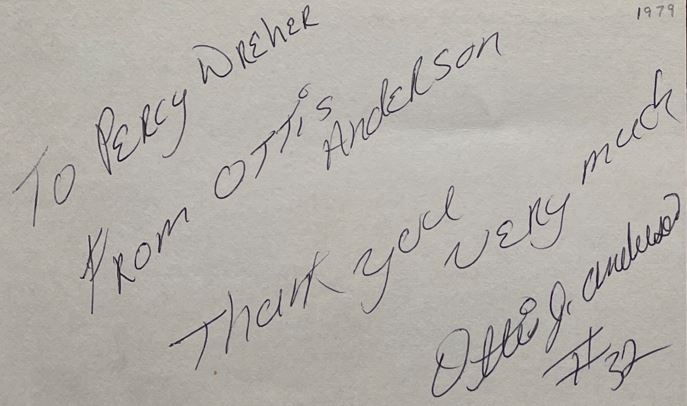 1979
To PERCY WREHER
FROM OTTis
Anderson
Thank you
very much
Ottis J. Anderson
#32